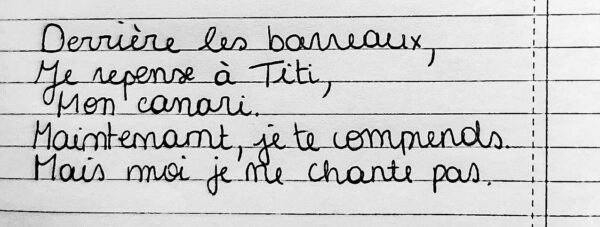 Derrière les barreaux,
Je repense à Titi,
Mon canari.
Maintenant, je te comprends.
Mais moi je ne chante pas.